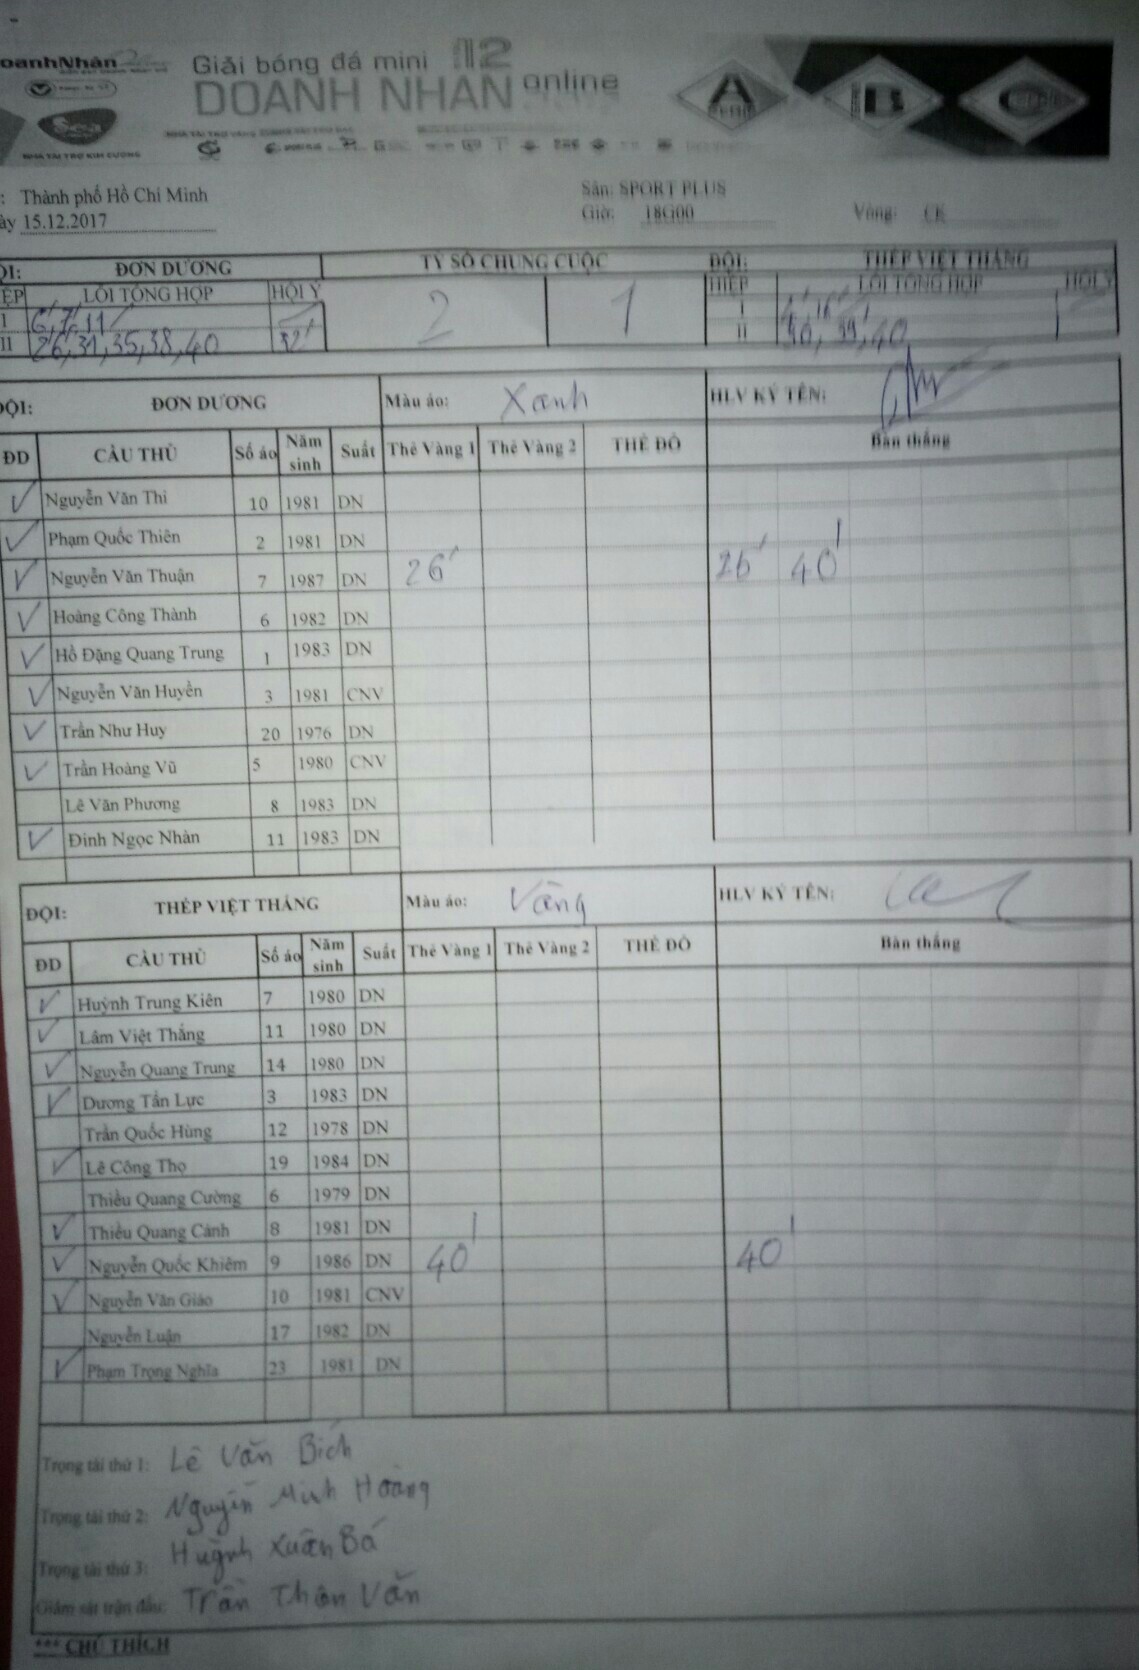 Giải bóng đá mini 12
DOANH NHÂN online
NHÀ TÀI TRỢ KIM CƯƠNG
: Thành phố Hồ Chí Minh
ày 15.12.2017
Sân: SPORT PLUS
Giờ: 18G00 Vòng: CK
ỘI: ĐƠN DƯƠNG TỶ SỐ CHUNG CUỘC ĐỘI: THÉP VIỆT THẮNG
IỆP LỖI TỔNG HỢP HỘI Ý 2 1 HIỆP LỖI TỔNG HỢP HỘI Ý
I 6', 7', 11' I
II 26, 31, 35, 38, 40 32' II 40
ĐỘI: ĐƠN DƯƠNG Màu áo: Xanh HLV KÝ TÊN:
ĐD CẦU THỦ Số áo Năm sinh Suất Thẻ Vàng 1 Thẻ Vàng 2 THẺ ĐỎ Bàn thắng
Nguyễn Văn Thi 10 1981 DN
Phạm Quốc Thiên 2 1981 DN
Nguyễn Văn Thuận 7 1987 DN 26' 26' 40'
Hoàng Công Thành 6 1982 DN
Hồ Đặng Quang Trung 1 1983 DN
Nguyễn Văn Huyền 3 1981 CNV
Trần Như Huy 20 1976 DN
Trần Hoàng Vũ 5 1980 CNV
Lê Văn Phương 8 1983 DN
Đinh Ngọc Nhàn 11 1983 DN
ĐỘI: THÉP VIỆT THẮNG Màu áo: Vàng HLV KÝ TÊN:
ĐD CẦU THỦ Số áo Năm sinh Suất Thẻ Vàng 1 Thẻ Vàng 2 THẺ ĐỎ Bàn thắng
Huỳnh Trung Kiên 7 1980 DN
Lâm Việt Thắng 11 1980 DN
Nguyễn Quang Trung 14 1980 DN
Dương Tấn Lực 3 1983 DN
Trần Quốc Hùng 12 1978 DN
Lê Công Thọ 19 1984 DN
Thiều Quang Cường 6 1979 DN
Thiều Quang Cảnh 8 1981 DN
Nguyễn Quốc Khiêm 9 1986 DN 40' 40'
Nguyễn Văn Giáo 10 1981 CNV
Nguyễn Luận 17 1982 DN
Phạm Trọng Nghĩa 23 1981 DN
Trọng tài thứ 1: Lê Văn Bích
Trọng tài thứ 2: Nguyễn Minh Hoàng
Trọng tài thứ 3: Huỳnh Xuân Bá
Giám sát trận đấu: Trần Thân Văn
*** CHÚ THÍCH